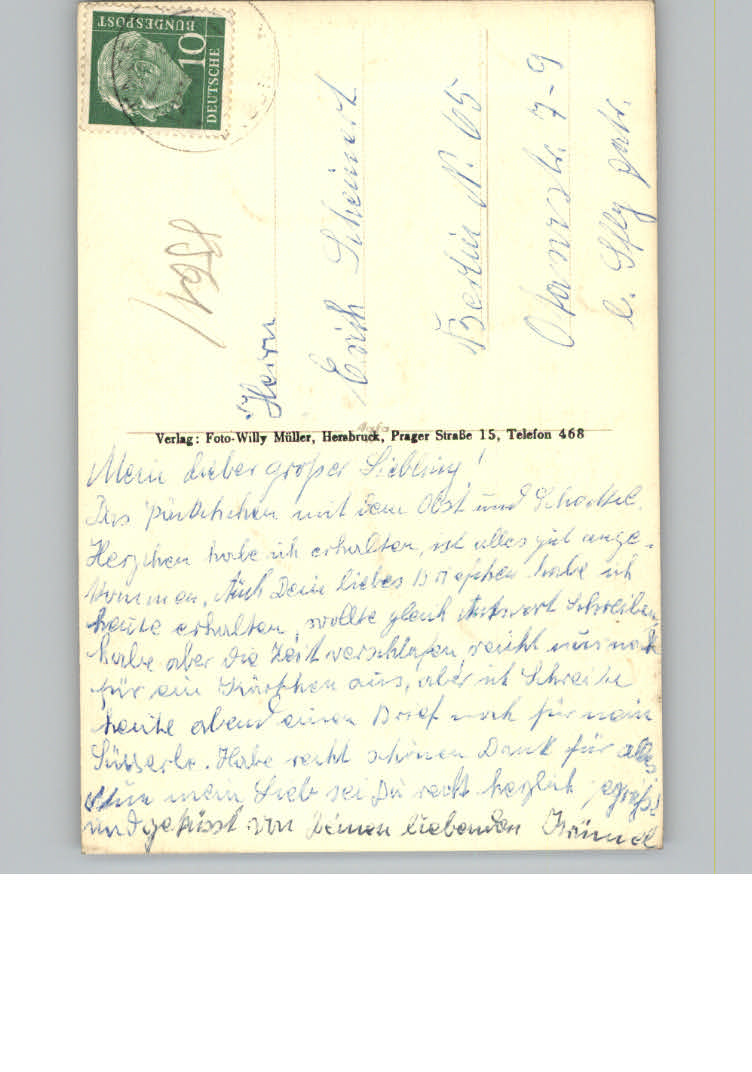 DEUTSCHE
BUNDESPOST
10
Herrn
Erich Scheinert
Berlin N. 65
7-9
Verlag: Foto-Willy Müller, Hersbruck, Prager Straße 15, Telefon 468
Mein lieber großer Liebling!
Das Päckchen mit dem Obst und
Herzchen habe ich erhalten, ist alles gut ange-
kommen. Auch Dein liebes Briefchen habe ich
heute erhalten, wollte gleich Antwort schreiben,
habe aber die Zeit verschlafen, reicht nur noch
für ein Kärtchen aus, aber ich schreibe
heute abend einen Brief noch für mein
Süsserle. Habe recht schönen Dank für alles
Nun mein Lieb sei Du recht herzlich gegrüßt
und geküsst von Deinem liebenden